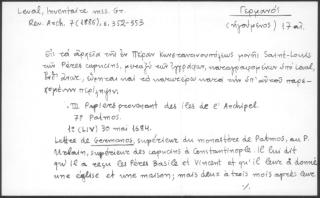 Laval, Inventaire mss. Gr.
Rev. Arch. 7 (1886), σ. 352-353
Γερμανός
(ἡγούμενος) 17 αἰ.
Εἰς τὰ ἀρχεῖα τῆς ἐν Πέραν Κωνσταντινουπόλεως μονῆς Saint-Louis
τῶν Pères capucins, μεταξὺ τῶν ἐγγράφων, καταγραφομένων ὑπὸ Laval,
ἔνθ' ἄνωτ., εὕρηται καὶ τὸ κατωτέρω κατὰ τὴν ὑπ' αὐτοῦ παρε-
χομένην περίληψιν.
. III Papiers provenant des îles de l'Archipel.
7) Patmos.
1º (LIV) 30 mai 1684.
Lettre de Germanos, supérieur du monastère de Patmos, au P.
Urbain, supérieur des capucins à Constantinople. Il lui dit
qu'il a reçu les Pères Basile et Vincent et qu'il leur a donné
une église et une maison; mais deux à trois mois après leur